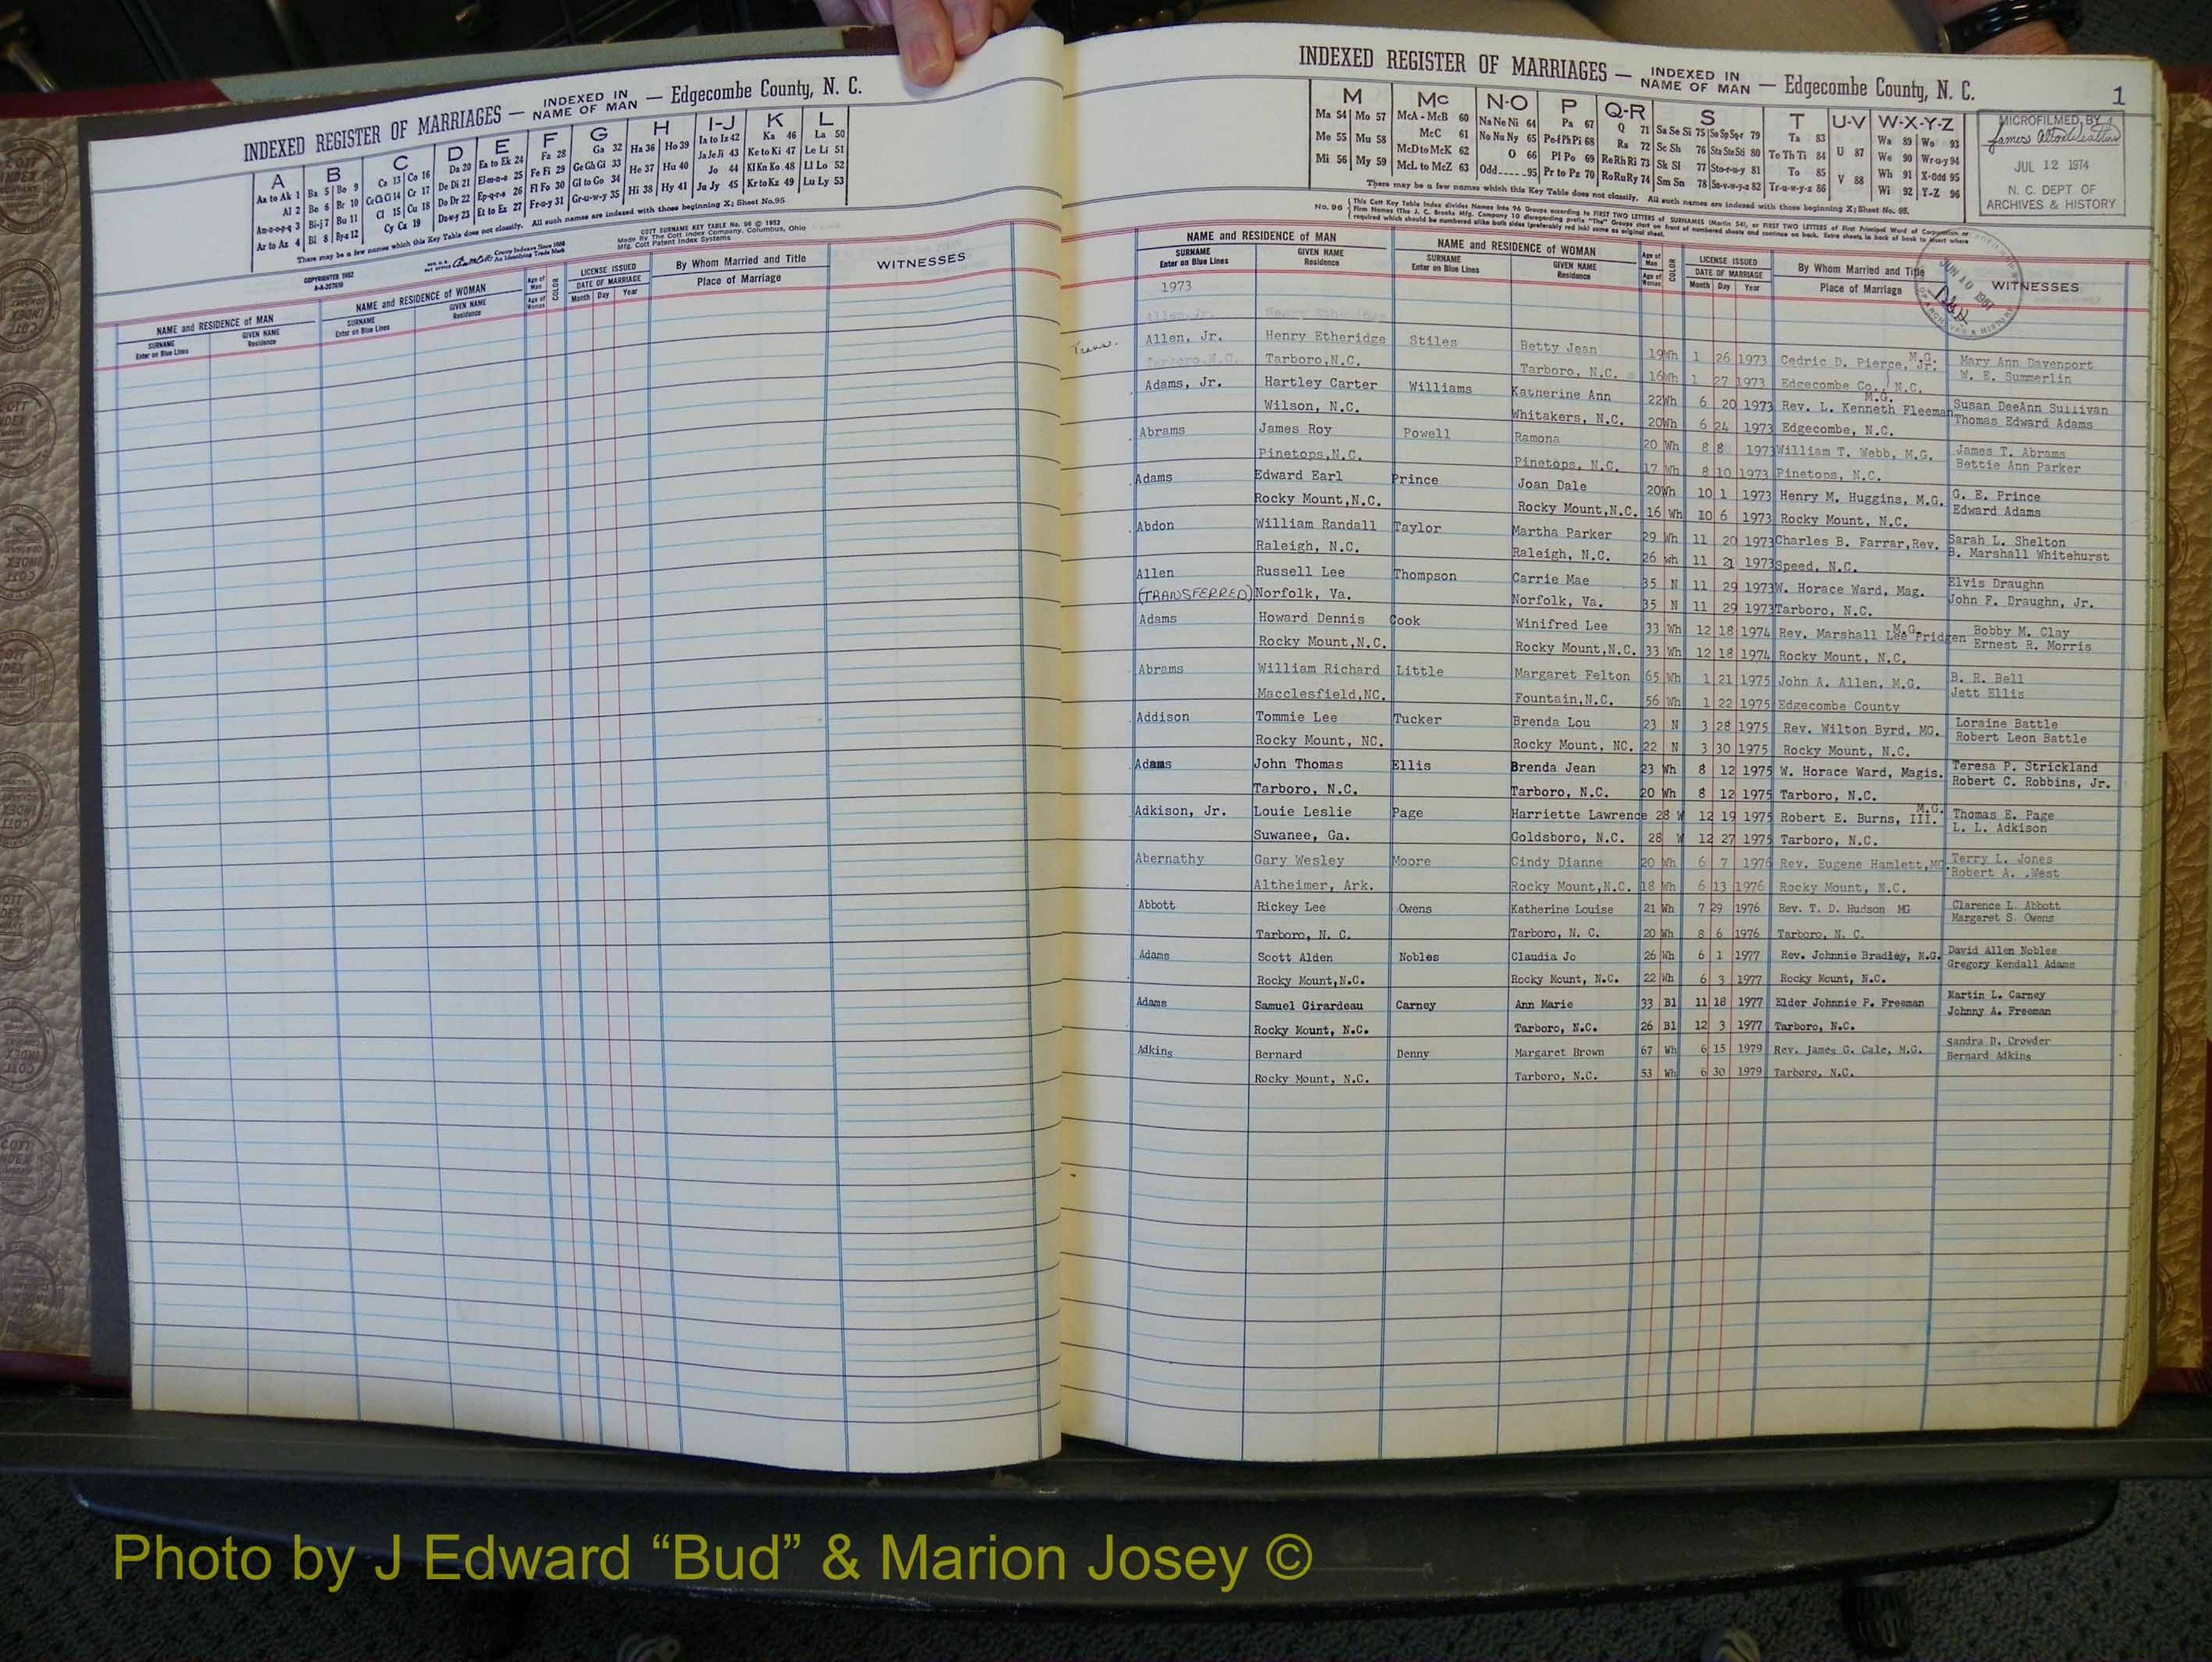 INDEXED REGISTER OF MARRIAGES — INDEXED IN NAME OF MAN — Edgecombe County, N. C.
A B C D E F G H I-J K L
Aa to Ak 1 Ba 5 Bo 9 Ca 13 Co 16 Da 20 Ea to Ek 24 Fa 28 Ga 32 Ha 36 Ho 39 Ia to Iz 42 Ka 46 La 50
Al 2 Be 6 Br 10 Ce Ch Ci 14 Cr 17 De Di 21 El-m-n-o 25 Fe Fi 29 Ge Gh Gi 33 He 37 Hu 40 Ja Je Ji 43 Ke to Ki 47 Le Li 51
Am-n-o-p-q 3 Bi-j 7 Bu 11 Cl 15 Cu 18 Do Dr 22 Ep-q-r-s 26 Fl Fo 30 Gl to Go 34 Hi 38 Hy 41 Jo 44 Kl Kn Ko 48 Ll Lo 52
Ar to Az 4 Bl 8 By-z 12 Cy Cz 19 Du-w-y 23 Et to Ez 27 Fr-u-y 31 Gr-u-w-y 35 Ju Jy 45 Kr to Kz 49 Lu Ly 53
There may be a few names which this Key Table does not classify. All such names are indexed with those beginning X; Sheet No.95
COPYRIGHTED 1952
COTT SURNAME KEY TABLE No. 96 © 1952
Made By The Cott Index Company, Columbus, Ohio
Mfg. Cott Patent Index Systems
NAME and RESIDENCE of MAN NAME and RESIDENCE of WOMAN Age of Man COLOR LICENSE ISSUED By Whom Married and Title WITNESSES
SURNAME Enter on Blue Lines GIVEN NAME Residence SURNAME Enter on Blue Lines GIVEN NAME Residence Age of Woman DATE OF MARRIAGE Month Day Year Place of Marriage
INDEXED REGISTER OF MARRIAGES — INDEXED IN NAME OF MAN — Edgecombe County, N. C.
1
M Mc N-O P Q-R S T U-V W-X-Y-Z
Ma 54 Mo 57 McA - McB 60 Na Ne Ni 64 Pa 67 Q 71 Sa Se Si 75 So Sp Sq-r 79 Ta 83 U 87 Wa 89 Wo 93
Me 55 Mu 58 McC 61 No Nu Ny 65 Pe-f Ph Pi 68 Ra 72 Sc Sh 76 Sta Ste Sti 80 Te Th Ti 84 We 90 Wr-u-y 94
Mi 56 My 59 McD to McK 62 O 66 Pl Po 69 Re Rh Ri 73 Sk Sl 77 Sto-r-u-y 81 To 85 V 88 Wh 91 X-Odd 95
McL to McZ 63 Odd 95 Pr to Pz 70 Ro Ru Ry 74 Sm Sn 78 Su-v-w-y-z 82 Tr-u-w-y-z 86 Wi 92 Y-Z 96
There may be a few names which this Key Table does not classify. All such names are indexed with those beginning X; Sheet No. 95.
MICROFILMED BY
JUL 12 1974
N. C. DEPT. OF
ARCHIVES & HISTORY
JUN 10 1987
NAME and RESIDENCE OF MAN NAME and RESIDENCE OF WOMAN Age of Man COLOR LICENSE ISSUED By Whom Married and Title WITNESSES
SURNAME Enter on Blue Lines GIVEN NAME Residence SURNAME Enter on Blue Lines GIVEN NAME Residence Age of Woman DATE OF MARRIAGE Month Day Year Place of Marriage
1973
Trans. Allen, Jr. Henry Etheridge Stiles Betty Jean 19 Wh 1 26 1973 Cedric D. Pierce, Jr. M.G. Mary Ann Davenport
Tarboro,N.C. Tarboro, N.C. 16 Wh 1 27 1973 Edgecombe Co., N.C. W. E. Summerlin
Adams, Jr. Hartley Carter Williams Katherine Ann 22 Wh 6 20 1973 Rev. L. Kenneth Fleeman M.G. Susan DeeAnn Sullivan
Wilson, N.C. Whitakers, N.C. 20 Wh 6 24 1973 Edgecombe, N.C. Thomas Edward Adams
Abrams James Roy Powell Ramona 20 Wh 8 8 1973 William T. Webb, M.G. James T. Abrams
Pinetops,N.C. Pinetops, N.C. 17 Wh 8 10 1973 Pinetops, N.C. Bettie Ann Parker
Adams Edward Earl Prince Joan Dale 20 Wh 10 1 1973 Henry M. Huggins, M.G. G. E. Prince
Rocky Mount,N.C. Rocky Mount,N.C. 16 Wh 10 6 1973 Rocky Mount, N.C. Edward Adams
Abdon William Randall Taylor Martha Parker 29 Wh 11 20 1973 Charles B. Farrar,Rev. Sarah L. Shelton
Raleigh, N.C. Raleigh, N.C. 26 wh 11 21 1973 Speed, N.C. B. Marshall Whitehurst
Allen Russell Lee Thompson Carrie Mae 35 N 11 29 1973 W. Horace Ward, Mag. Elvis Draughn
(TRANSFERRED) Norfolk, Va. Norfolk, Va. 35 N 11 29 1973 Tarboro, N.C. John F. Draughn, Jr.
Adams Howard Dennis Cook Winifred Lee 33 Wh 12 18 1974 Rev. Marshall Lee Pridgen M.G. Bobby M. Clay
Rocky Mount,N.C. Rocky Mount,N.C. 33 Wh 12 18 1974 Rocky Mount, N.C. Ernest R. Morris
Abrams William Richard Little Margaret Felton 65 Wh 1 21 1975 John A. Allen, M.G. B. R. Bell
Macclesfield,NC. Fountain,N.C. 56 Wh 1 22 1975 Edgecombe County Jett Ellis
Addison Tommie Lee Tucker Brenda Lou 23 N 3 28 1975 Rev. Wilton Byrd, MG. Loraine Battle
Rocky Mount, NC. Rocky Mount, NC. 22 N 3 30 1975 Rocky Mount, N.C. Robert Leon Battle
Adams John Thomas Ellis Brenda Jean 23 Wh 8 12 1975 W. Horace Ward, Magis. Teresa P. Strickland
Tarboro, N.C. Tarboro, N.C. 20 Wh 8 12 1975 Tarboro, N.C. Robert C. Robbins, Jr.
Adkison, Jr. Louie Leslie Page Harriette Lawrence 28 W 12 19 1975 Robert E. Burns, III. M.G. Thomas E. Page
Suwanee, Ga. Goldsboro, N.C. 28 W 12 27 1975 Tarboro, N.C. L. L. Adkison
Abernathy Gary Wesley Moore Cindy Dianne 20 Wh 6 7 1976 Rev. Eugene Hamlett,MG Terry L. Jones
Altheimer, Ark. Rocky Mount,N.C. 18 Wh 6 13 1976 Rocky Mount, N.C. Robert A. .West
Abbott Rickey Lee Owens Katherine Louise 21 Wh 7 29 1976 Rev. T. D. Hudson MG Clarence L. Abbott
Tarboro, N. C. Tarboro, N. C. 20 Wh 8 6 1976 Tarboro, N. C. Margaret S. Owens
Adams Scott Alden Nobles Claudia Jo 26 Wh 6 1 1977 Rev. Johnnie Bradley, M.G. David Allen Nobles
Rocky Mount,N.C. Rocky Mount, N.C. 22 Wh 6 3 1977 Rocky Mount, N.C. Gregory Kendall Adams
Adams Samuel Girardeau Carney Ann Marie 33 Bl 11 18 1977 Elder Johnnie P. Freeman Martin L. Carney
Rocky Mount, N.C. Tarboro, N.C. 26 Bl 12 3 1977 Tarboro, N.C. Johnny A. Freeman
Adkins Bernard Denny Margaret Brown 67 Wh 6 15 1979 Rev. James G. Cale, M.G. Sandra D. Crowder
Rocky Mount, N.C. Tarboro, N.C. 53 Wh 6 30 1979 Tarboro, N.C. Bernard Adkins
Photo by J Edward “Bud” & Marion Josey ©